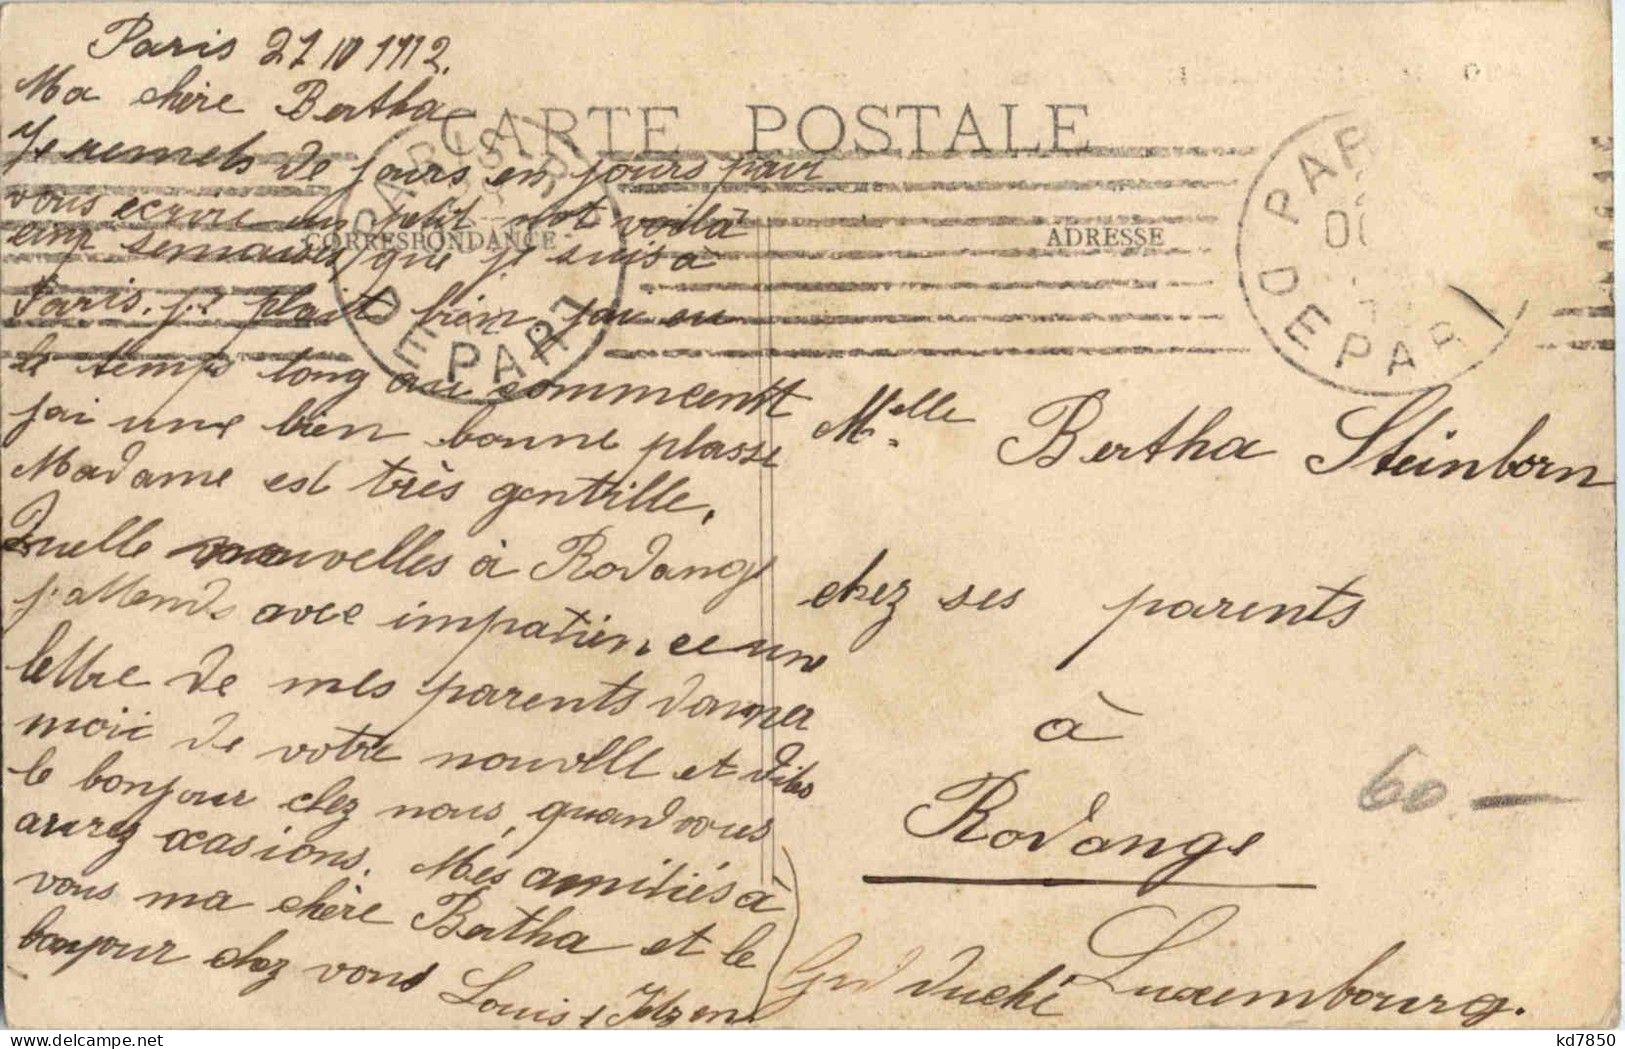 Paris 21 IV 1912.
Ma chère Bertha
CARTE POSTALE
Je remets de jours en jours pour
vous ecrire un petit mot voilà
CORRESPONDANCE
cinq semaines que je suis à
Paris. plait bien, j'ai eu
le temps long au commcentt
j'ai une bien bonne plasse
Madame est très gentille.
Quelle nouvelles à Rodange
j'attends avec impatience une
lettre de mes parents donner
moii de votre nouvelle et dites
le bonjour chez nous, quand vous
aurez ocasions. Mes amitiés à
vous ma chère Bertha et le
bonjour chez vous Louis
PARIS
DEPART
ADRESSE
PAR
DEPAR
Melle Bertha Steinborn
chez ses parents
à
Rodange
Grd Duché Luxembourg.
60 —
kd7850